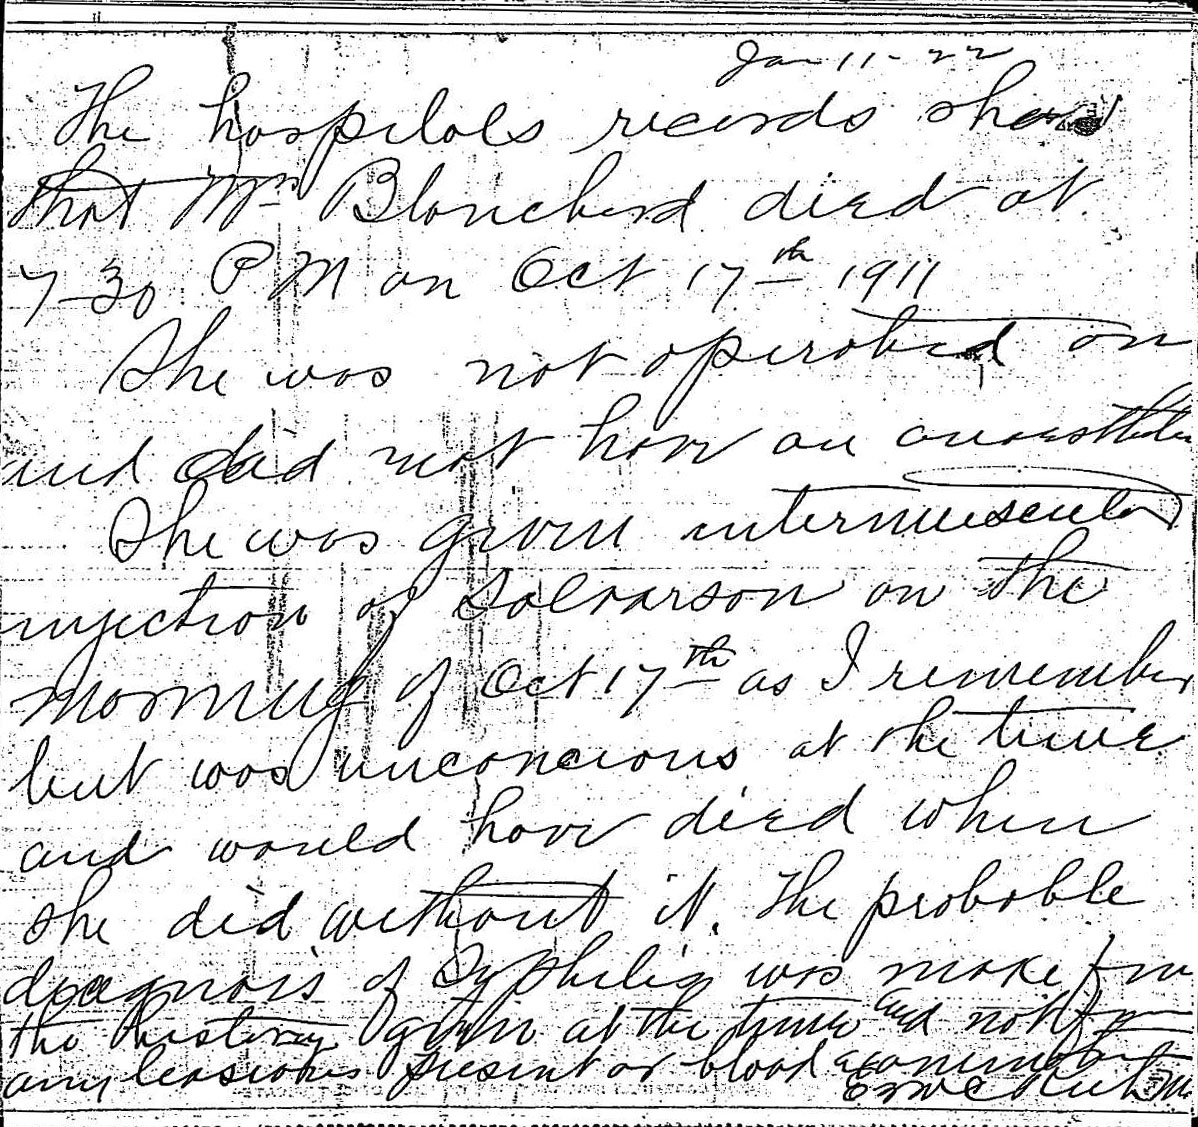 Jan 11-22
The hospitals records show
that Mrs Blancherd died at
7-30 PM on Oct 17th 1911
She was not operated on
and did not have an
She was given intermuscular
injection of Salvarson on the
morning of Oct 17th as I remember
but was unconcious at the time
and would have died when
she did without it. The probable
diagnosis of Syphilis was make from
the history given at the time and not from
any leasions present or blood